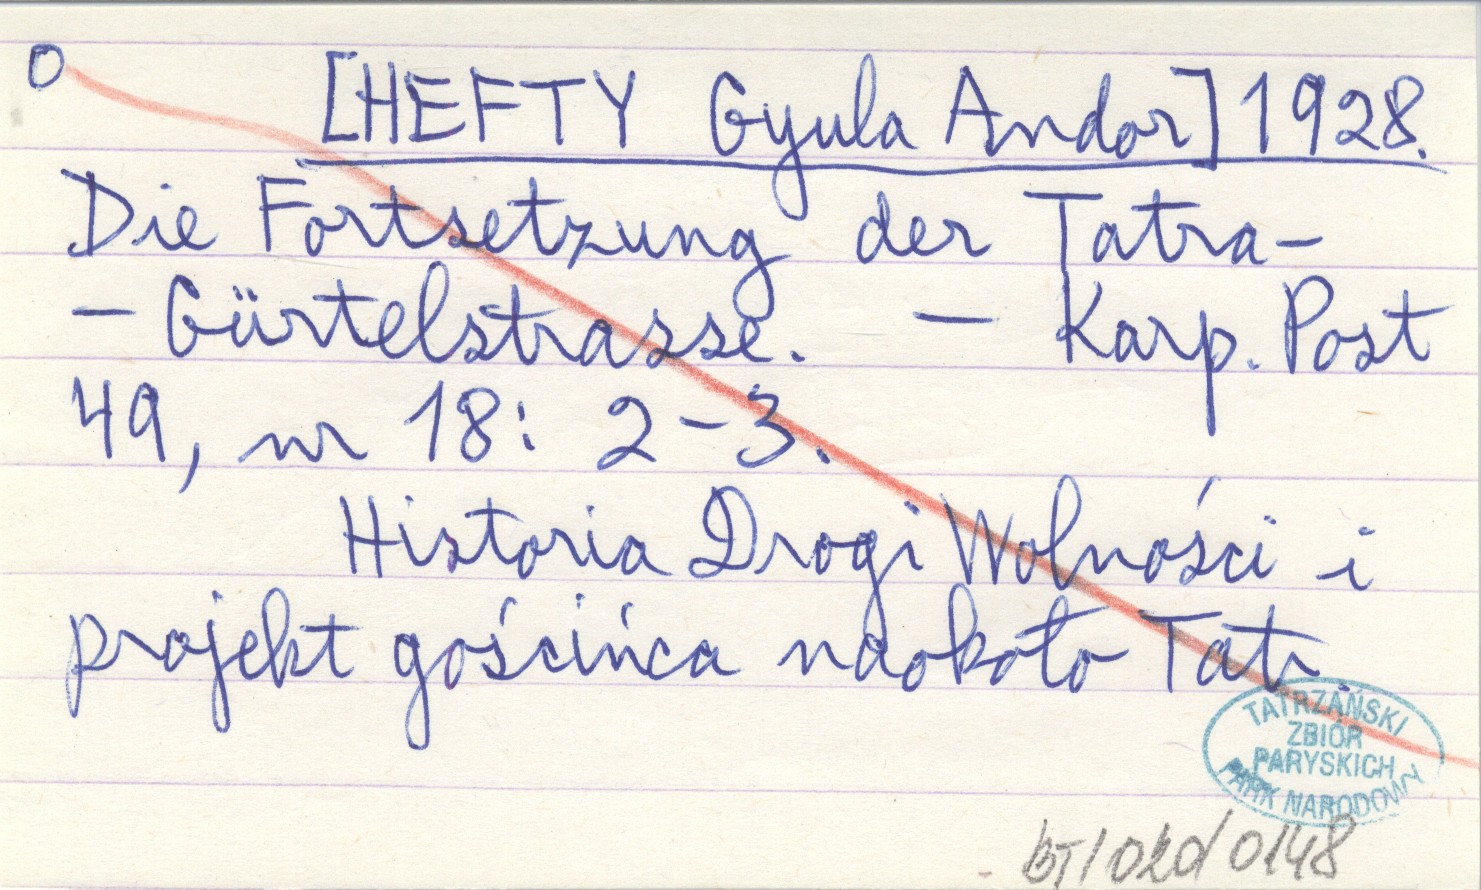 O [HEFTY Gyula Andor] 1928.
Die Fortsetzung der Tatra-
- Gürtelstrasse. - Karp. Post
49, nr 18: 2-3.
Historia Drogi Wolności i
projekt gościńca naokoło Tatr.
TATRZAŃSKI
ZBIÓR
PARYSKICH
PARK NARODOWY
BT/02d/0148